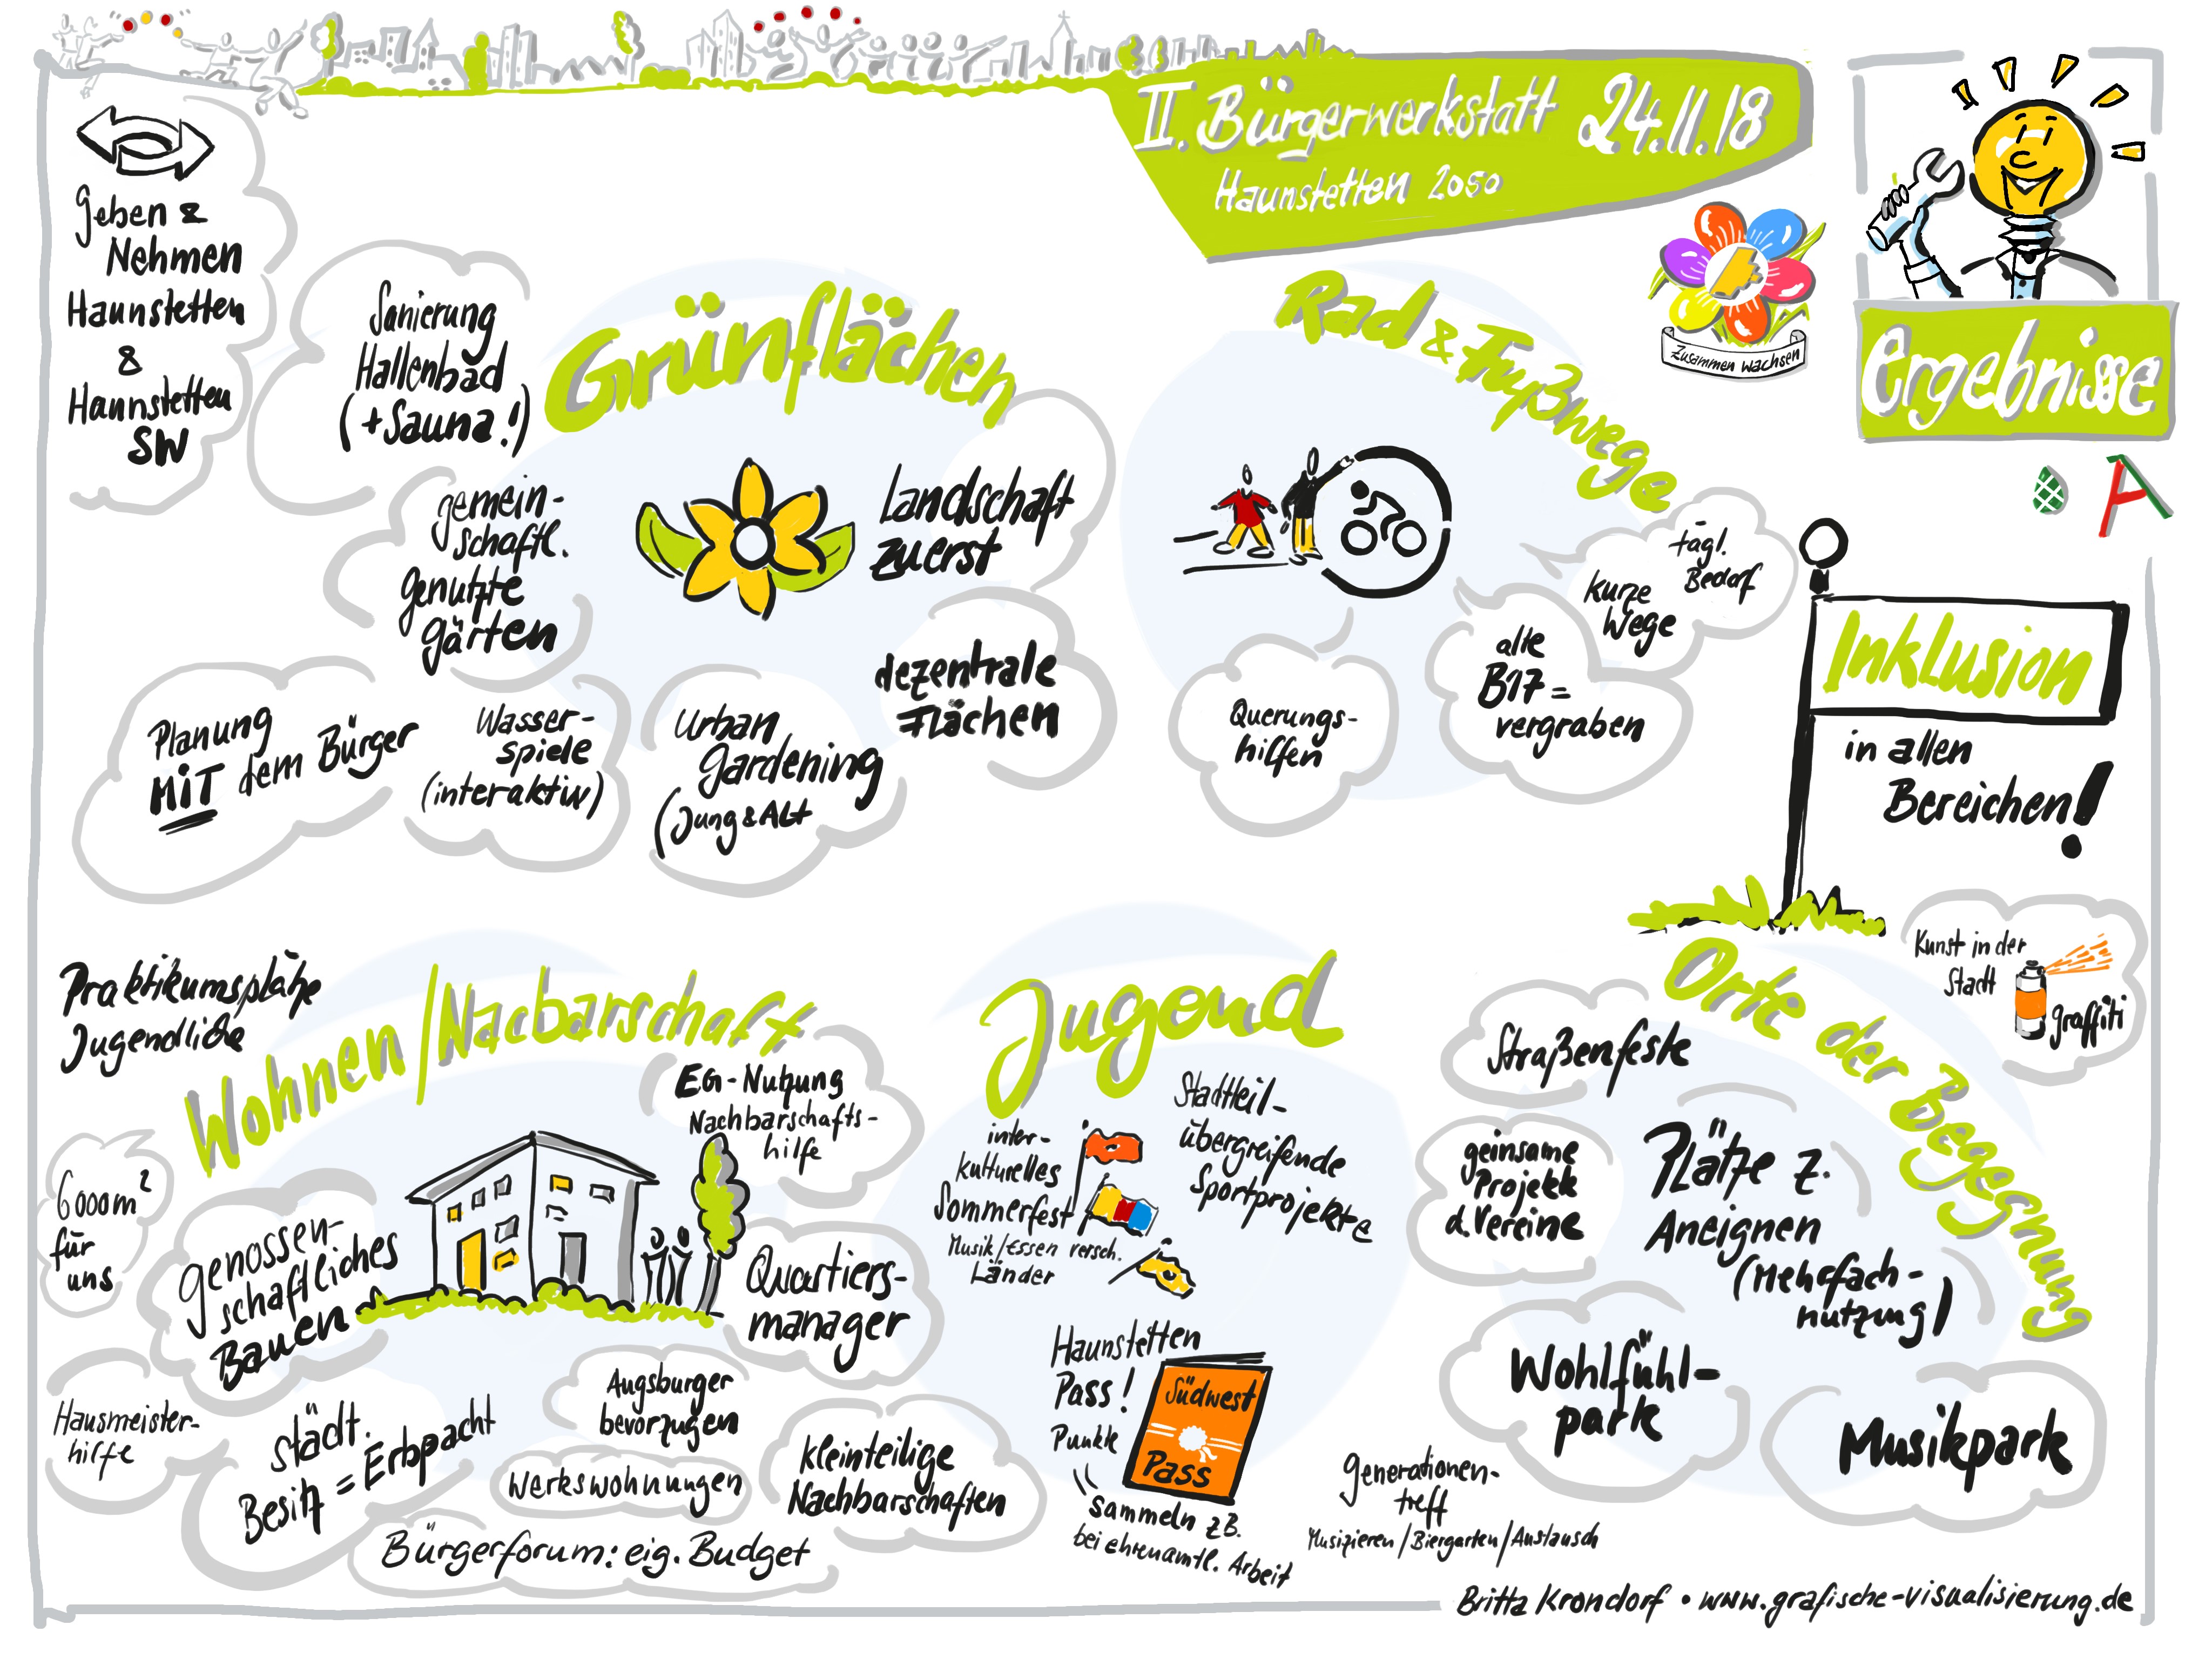 II. Bürgerwerkstatt 24.11.18
Haunstetten 2050
Zusammen wachsen
Ergebnisse
A
Geben &
Nehmen
Haunstetten
&
Haunstetten
SW
Sanierung
Hallenbad
(+Sauna!)
Grünflächen
gemein-
schaftl.
genutzte
gärten
Landschaft
zuerst
dezentrale
Flächen
Planung
MiT dem Bürger
Wasser-
spiele
(interaktiv)
Urban
gardening
(Jung & Alt
Rad & Fußwege
tägl.
Bedarf
kurze
Wege
alte
B17 =
vergraben
Querungs-
hilfen
Inklusion
in allen
Bereichen!
Praktikumsplätze
Jugendliche
Wohnen/Nacbarschaft
EG-Nutzung
Nachbarschafts-
hilfe
6000m²
für
uns
genossen-
schaftliches
Bauen
Quartiers-
manager
Hausmeister-
hilfe
städt.
Besitz = Erbpacht
Augsburger
bevorzugen
Werkswohnungen
kleinteilige
Nachbarschaften
Bürgerforum: eig. Budget
Jugend
inter-
kulturelles
Sommerfest
Musik/Essen versch.
Länder
Stadtteil-
übergreifende
Sportprojekte
Haunstetten
Pass!
Punkte
sammeln zB.
bei ehrenamtl. Arbeit
Südwest
Pass
Orte der Begegnung
Kunst in der
Stadt
graffiti
Straßenfeste
geinsame
Projekte
d. Vereine
Plätze z.
Aneignen
(Mehrfach-
nutzung)
Wohlfühl-
park
Musikpark
Generationen-
treff
Musizieren/Biergarten/Austausch
Britta Krondorf • www.grafische-visualisierung.de